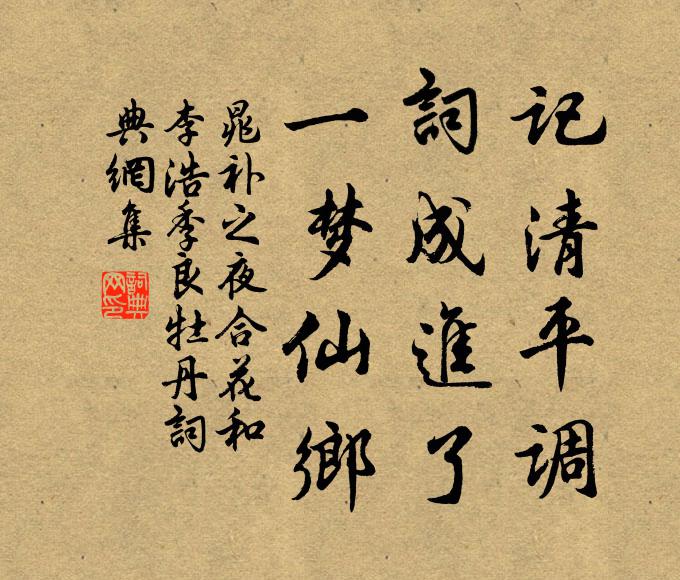 记清平调
詞成進了
一梦仙鄉
晁补之夜合花和
李浩季良牡丹詞
典網集
詞典網印